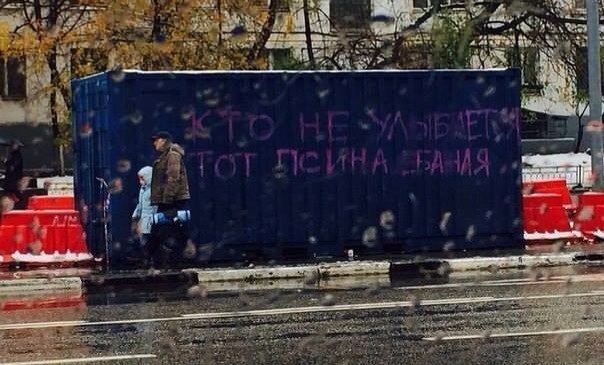 КТО НЕ УЛЫБАЕТСЯ
ТОТ ПСИНА ЕБАНАЯ